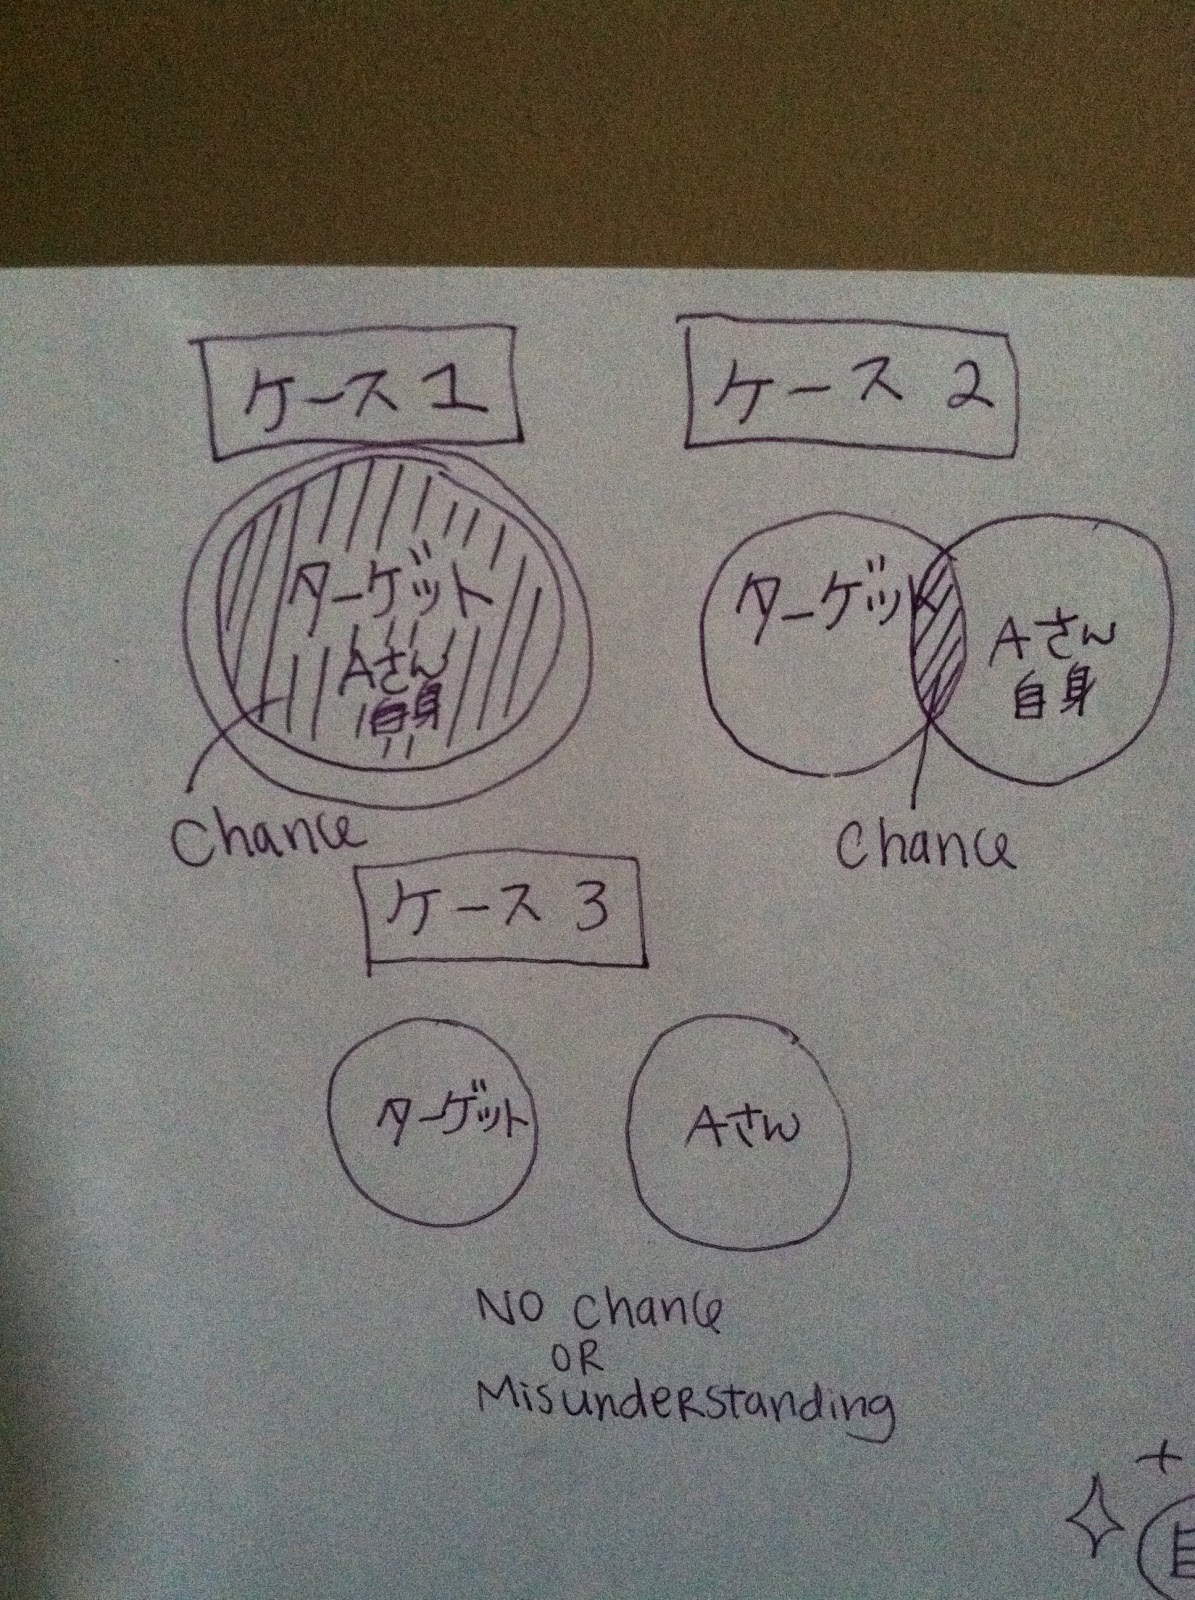 ケース1
ターゲット
Aさん
自身
Chance
ケース2
ターゲット
Aさん
自身
Chance
ケース3
ターゲット
Aさん
NO Chance
OR
Misunderstanding